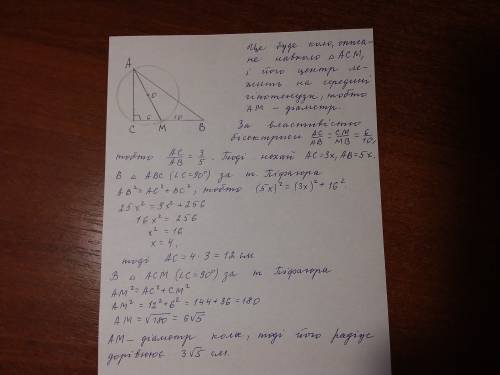 Це буде коло, описа-
не навколо △ACM,
і його центр ле-
жить на середині
гіпотенузи, тобто
AM - діаметр.
A
C 6 M 10 B
За властивістю
бісектриси AC/AB = CM/MB = 6/10,
тобто AC/AB = 3/5. Тоді нехай AC=3x, AB=5x.
В △ ABC (∠C=90°) за т. Піфагора
AB²=AC²+BC², тобто (5x)²=(3x)²+16².
25x²=9x²+256
16x²=256
x²=16
x=4,
тоді AC=4·3=12 см
В △ ACM (∠C=90°) за т. Піфагора
AM²=AC²+CM²
AM²=12²+6²=144+36=180
AM=√180=6√5
AM - діаметр кола, тоді його радіус
дорівнює 3√5 см.